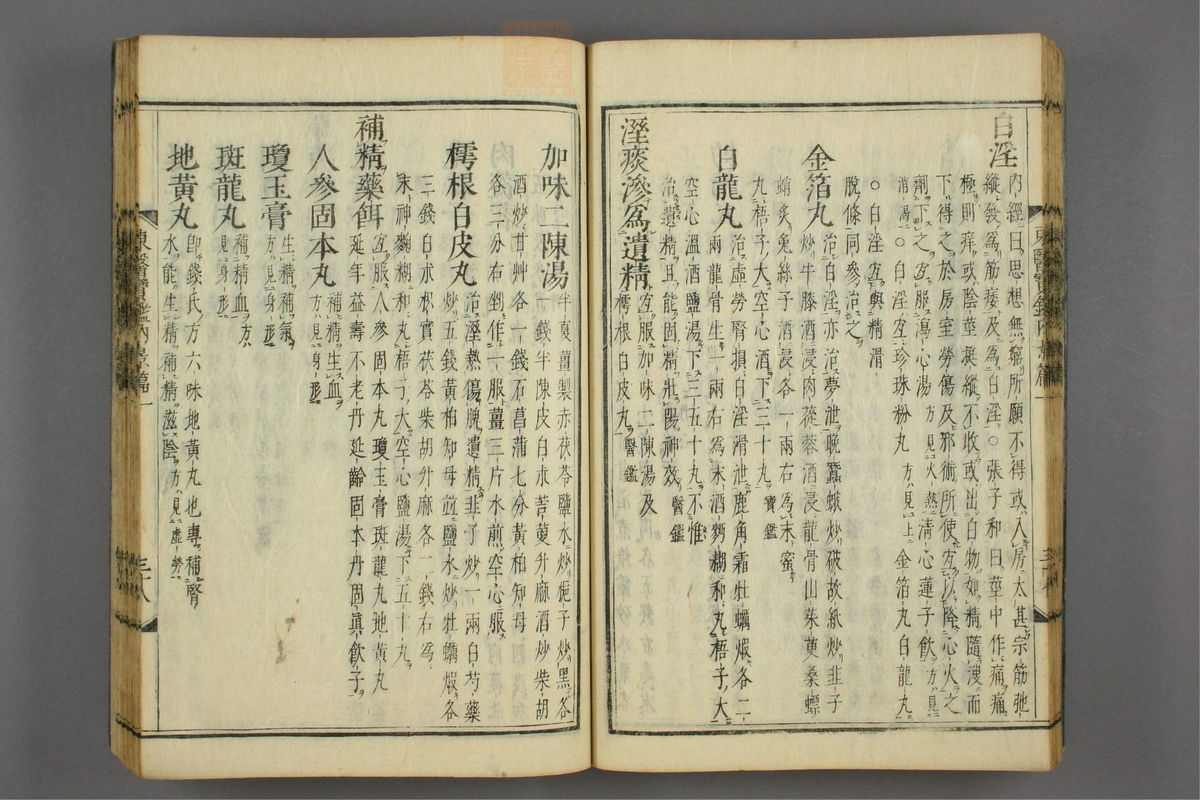 白淫
內經曰思想無窮所願不得或入房太甚宗筋弛
縱發爲筋痿及爲白淫○張子和曰莖中作痛痛
極則痒或陰莖挺縱不收或出白物如精隨溲而
下得之於房室勞傷及邪術所使宜以降心火之
劑下之宜服瀉心湯方ハ見火熱淸心蓮子飮方ハ見
消渴○白淫宜珍珠粉丸方ハ見上金箔丸白龍丸
○白淫宜與精滑
脫條同參治之
金箔丸 治白淫亦治夢泄晩蠶蛾炒破故紙炒韭子
炒牛膝酒浸肉蓯蓉酒浸龍骨山茱萸桑螵
蛸炙兔絲子酒浸各一兩右爲末蜜
丸梧子大空心酒下三十丸寶鑑
白龍丸 治虛勞腎損白淫滑泄鹿角霜牡蠣煆各二
兩龍骨生一兩右爲末酒麪糊和丸梧子大
空心溫酒鹽湯下三五十丸不惟
治遺精且能固精壯陽神效醫鑑
溼痰滲爲遺精 宜服加味二陳湯及
樗根白皮丸醫鑑
加味二陳湯 半夏薑製赤茯苓鹽水炒梔子炒黑各
一錢半陳皮白朮苦蔞升麻酒炒柴胡
酒炒甘艸各一錢石菖蒲七分黃柏知母
各三分右剉作一服薑三片水煎空心服
樗根白皮丸 治溼熱傷脾遺精韭子炒一兩白芍藥
炒五錢黃柏知母並鹽水炒牡蠣煆各
三錢白朮枳實茯苓柴胡升麻各二錢右爲
末神麴糊和丸梧子大空心鹽湯下五十丸
補精藥餌 宜服人參固本丸瓊玉膏斑龍丸地黃丸
延年益壽不老丹延齡固本丹固眞飮子
人參固本丸 補精生血
方ハ見身形
瓊玉膏 生精補氣
方ハ見身形
斑龍丸 補精血方ハ
見身形
地黃丸 卽錢氏方六味地黃丸也專補腎
水能生精補精滋陰方ハ見虛勞
東醫寶鑑內景篇一
三十八